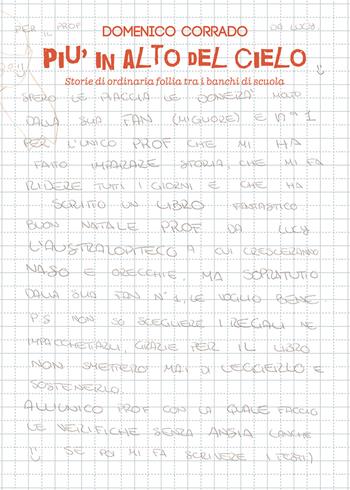 PER IL PROF DA LUCY
DOMENICO CORRADO
PIU' IN ALTO DEL CIELO
Storie di ordinaria follia tra i banchi di scuola
SPERO LE PIACCIA LE DONERA' MOLTO
DALLA SUA FAN (MIGLIORE) E N° 1
PER L'UNICO PROF CHE MI HA
FATTO IMPARARE STORIA, CHE MI FA
RIDERE TUTTI I GIORNI E CHE HA
SCRITTO UN LIBRO FANTASTICO
BUON NATALE PROF DA LUCY
L'AUSTRALOPITECO A CUI CRESCERANNO
NASO E ORECCHIE, MA SOPRATUTTO
DALLA SUA FAN N°1, LE VOGLIO BENE.
P.S NON SO SCEGLIERE I REGALI NE
IMPACCHETTARLI, GRAZIE PER IL LIBRO
NON SMETTERO' MAI DI LEGGERLO E
SOSTENERLO.
ALL'UNICO PROF CON LA QUALE FACCIO
LE VERIFICHE SENZA ANSIA (ANCHE
SE POI MI FA SCRIVERE I TESTI)